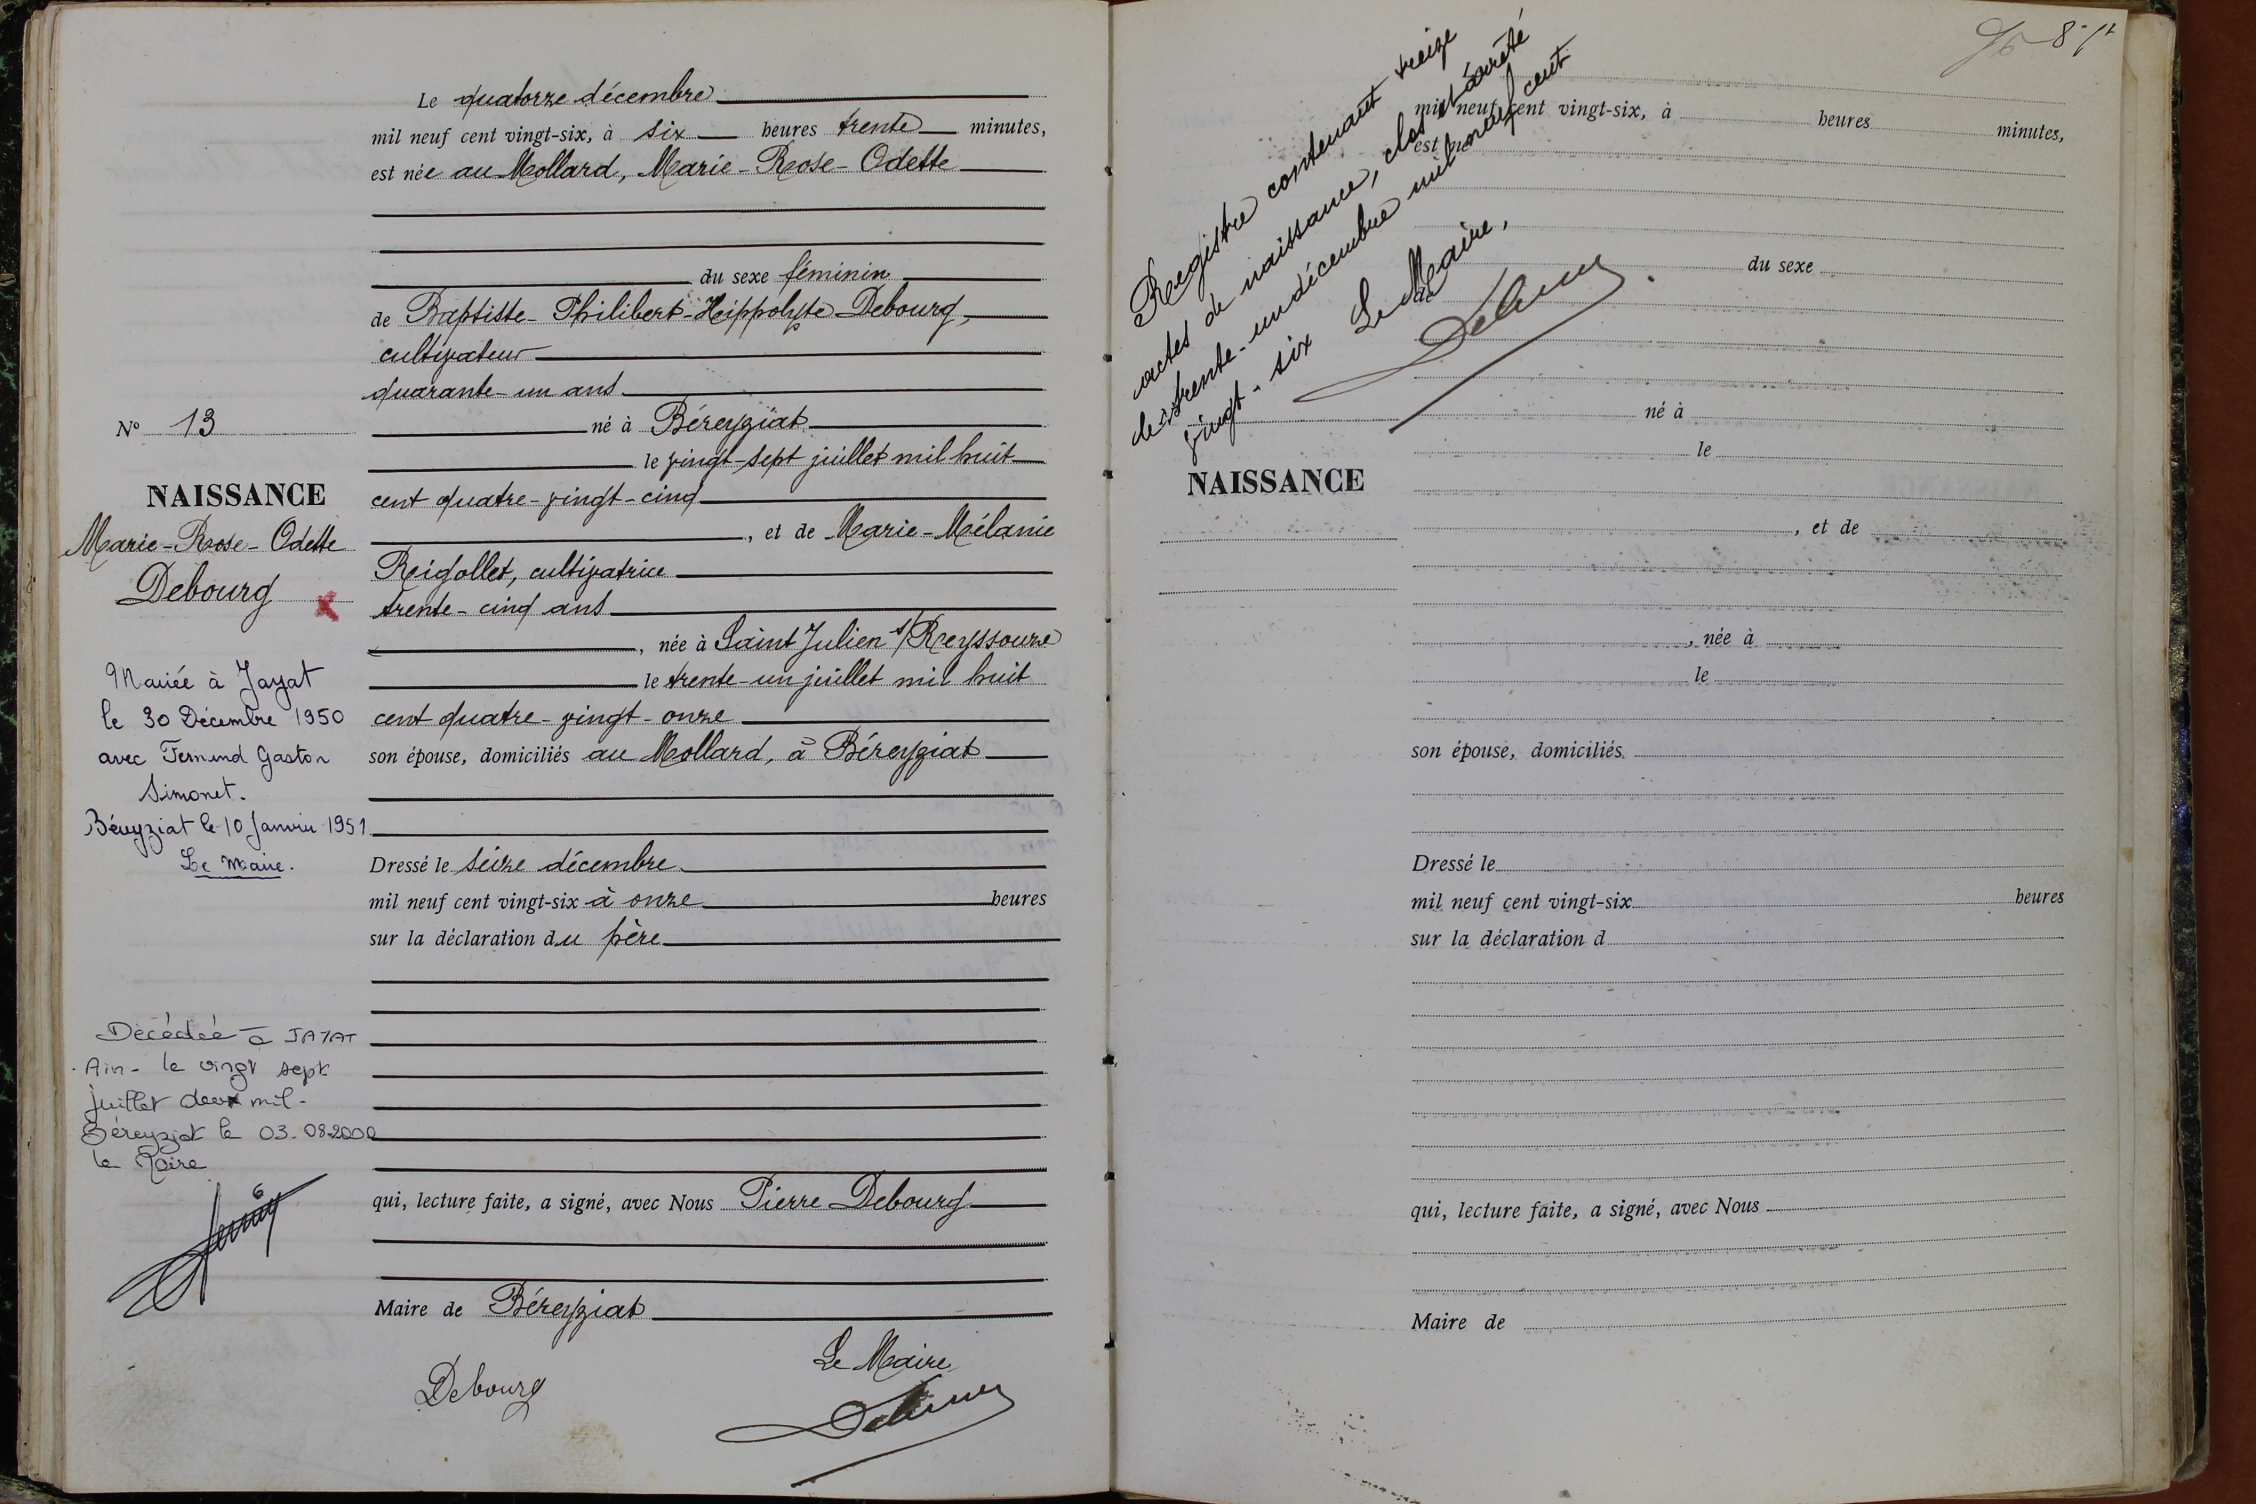 Le quatorze décembre
mil neuf cent vingt-six, à six heures trente minutes,
est née au Mollard, Marie-Rose-Odette
du sexe féminin
de Baptiste-Philibert-Hippolyte Debourg,
cultivateur
quarante-un ans
né à Béreyziat
le vingt-sept juillet mil huit
cent quatre-vingt-cinq
, et de Marie-Mélanie
Reigollet, cultivatrice
trente-cinq ans
, née à Saint Julien s/Reyssouze
le trente-un juillet mil huit
cent quatre-vingt-onze
son épouse, domiciliés au Mollard, à Béreyziat
Dressé le seize décembre
mil neuf cent vingt-six à onze heures
sur la déclaration du père
qui, lecture faite, a signé, avec Nous Pierre Debourg
Maire de Béreyziat
Le Maire
Debourg
N° 13
NAISSANCE
Marie-Rose-Odette
Debourg
Mariée à Jayat
le 30 Décembre 1950
avec Fernand Gaston
Simonet.
Béreyziat le 10 Janvier 1951
Le Maire.
Décédée à JAYAT
Ain - le vingt sept
juillet deux mil -
Béreyziat le 03.08.2000
le Maire
Registre contenant treize
actes de naissance, clos et arrêté
le trente-un décembre mil neuf cent
vingt-six Le Maire,
mil neuf cent vingt-six, à heures minutes,
est né
du sexe
de
né à
le
NAISSANCE
, et de
, née à
le
son épouse, domiciliés
Dressé le
mil neuf cent vingt-six heures
sur la déclaration d
qui, lecture faite, a signé, avec Nous
Maire de